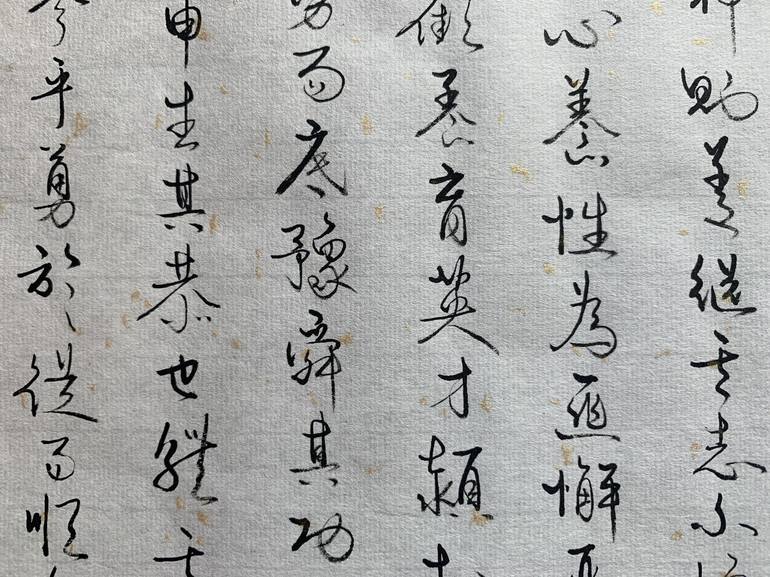 神則善繼其志不
心養性為匪懈惡
顧養育英才穎封
勞而底豫舜其功
申生其恭也體其
參乎勇於從而順